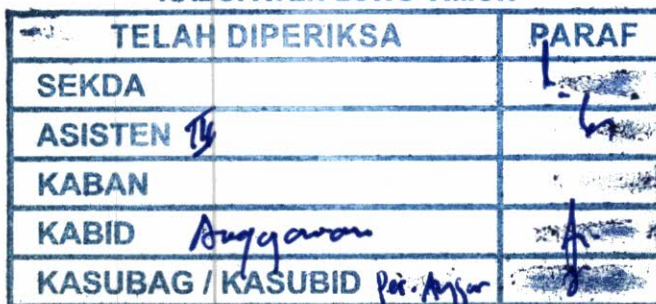 TELAH DIPERIKSA PARAF
SEKDA
ASISTEN III
KABAN
KABID Anggaran
KASUBAG / KASUBID Per. Anggar